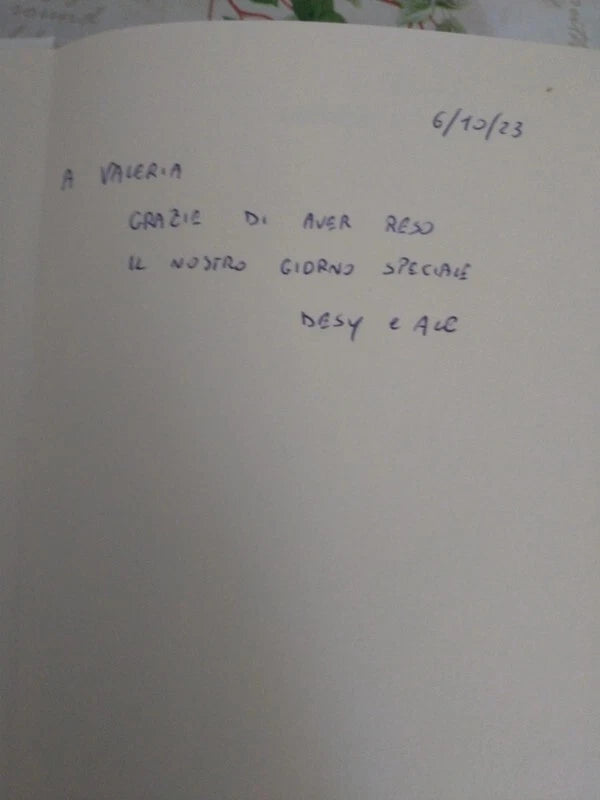 6/10/23
A VALERIA
GRAZIE DI AVER RESO
IL NOSTRO GIORNO SPECIALE
DESY e ALE